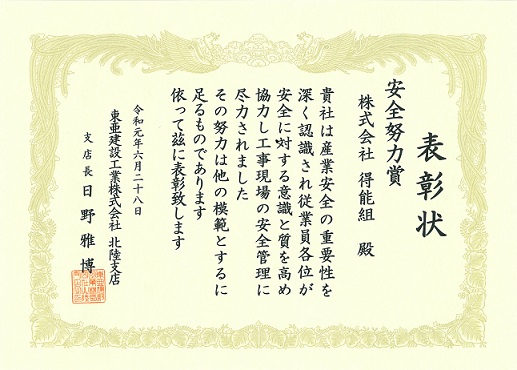 表彰状
安全努力賞
株式会社 得能組 殿
貴社は産業安全の重要性を
深く認識され従業員各位が
安全に対する意識と質を高め
協力し工事現場の安全管理に
尽力されました
その努力は他の模範とするに
足るものであります
依って茲に表彰致します
令和元年六月二十八日
東亜建設工業株式会社 北陸支店
支店長 日野雅博